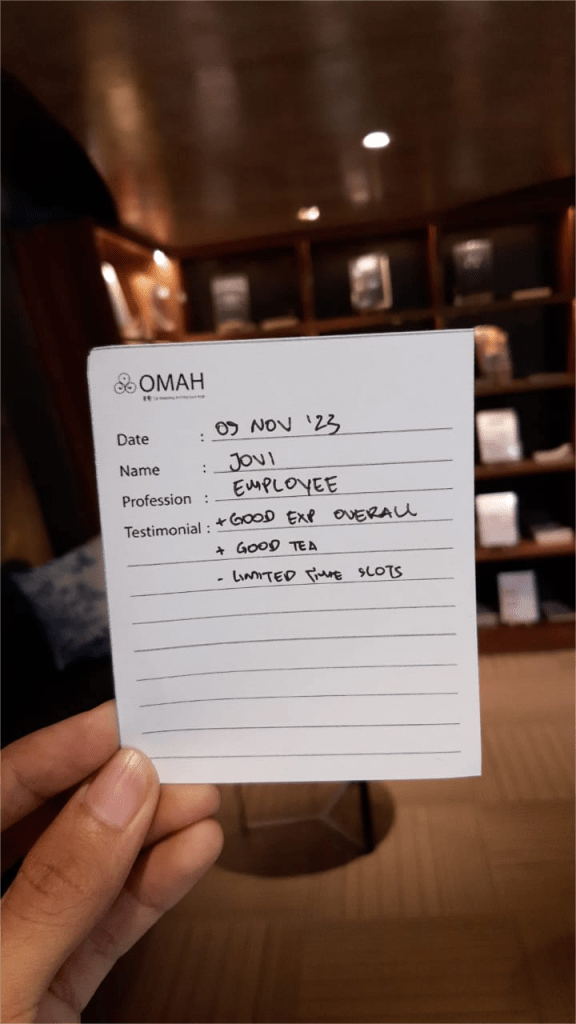 OMAH
Date : 09 NOV '23
Name : JOVI
Profession : EMPLOYEE
Testimonial : + GOOD EXP OVERALL
+ GOOD TEA
- LIMITED TIME SLOTS